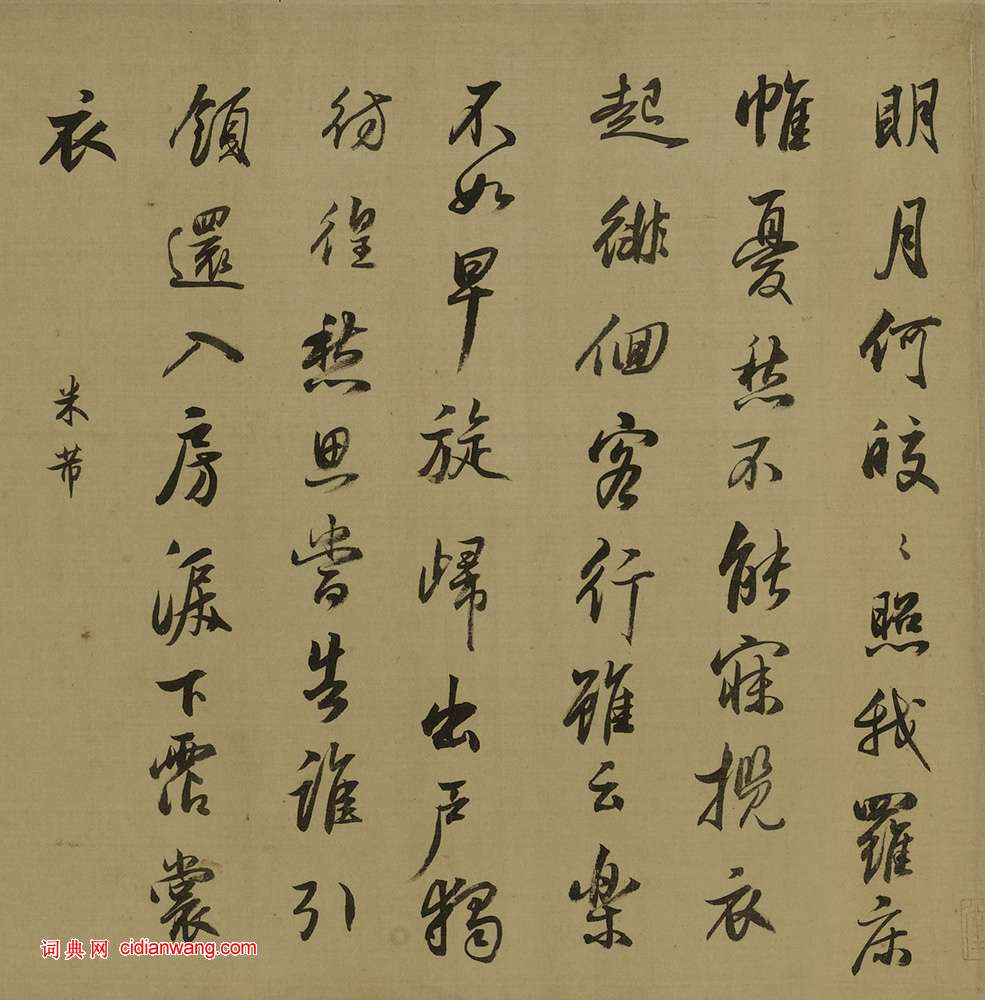 明月何皎〻照我羅床
帷憂愁不能寐攬衣
起徘徊客行雖云樂
不如早旋歸出戶獨
彷徨愁思當告誰引
領還入房淚下霑裳
衣
米芾
词典网 cidianwang.com